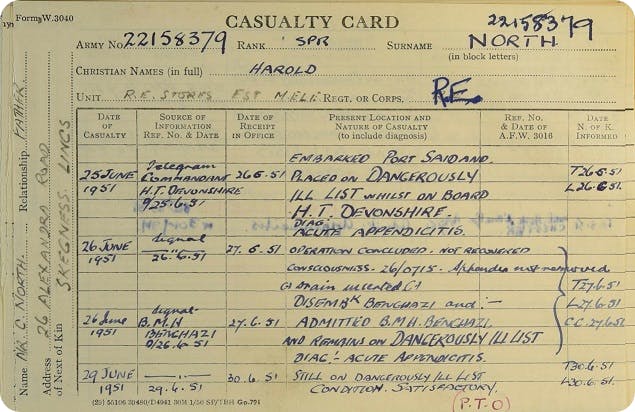 Form W.3040
CASUALTY CARD
22158379
ARMY No. 22158379 RANK SPR SURNAME NORTH
(in block letters)
CHRISTIAN NAMES (in full) HAROLD
UNIT R.E. STORES EST MELF REGT. OR CORPS. R.E.
DATE OF CASUALTY
SOURCE OF INFORMATION REF. NO. & DATE
DATE OF RECEIPT IN OFFICE
PRESENT LOCATION AND NATURE OF CASUALTY (to include diagnosis)
REF. NO. & DATE OF A.F.W. 3016
DATE N. OF K. INFORMED
EMBARKED PORT SAID AND
25 JUNE Telegram 26.6.51 PLACED ON DANGEROUSLY T26.6.51
1951 COMMANDANT ILL LIST WHILST ON BOARD L26.6.51.
H.T. DEVONSHIRE H.T. DEVONSHIRE.
9/25.6.51 DIAG. ACUTE APPENDICITIS.
26 JUNE Signal 27.6.51 OPERATION CONCLUDED. NOT RECOVERED
1951 26.6.51 CONSCIOUSNESS. 26/0715. Appendix not removed
drain inserted T27.6.51
DISEMBK BENGHAZI and :- L27.6.51
26 June Signal 27.6.51 ADMITTED B.M.H. BENGHAZI CC.27.6.51
1951 B.M.H. AND REMAINS ON DANGEROUSLY ILL LIST
BENGHAZI DIAG: ACUTE APPENDICITIS.
0/26.6.51
29 JUNE 30.6.51 STILL ON DANGEROUSLY ILL LIST T30.6.51
1951 29.6.51 CONDITION. SATISFACTORY. L30.6.51.
(P.T.O)
Name MR. C. NORTH. Relationship FATHER
Address 26 ALEXANDRA ROAD
of Next of Kin SKEGNESS. LINCS